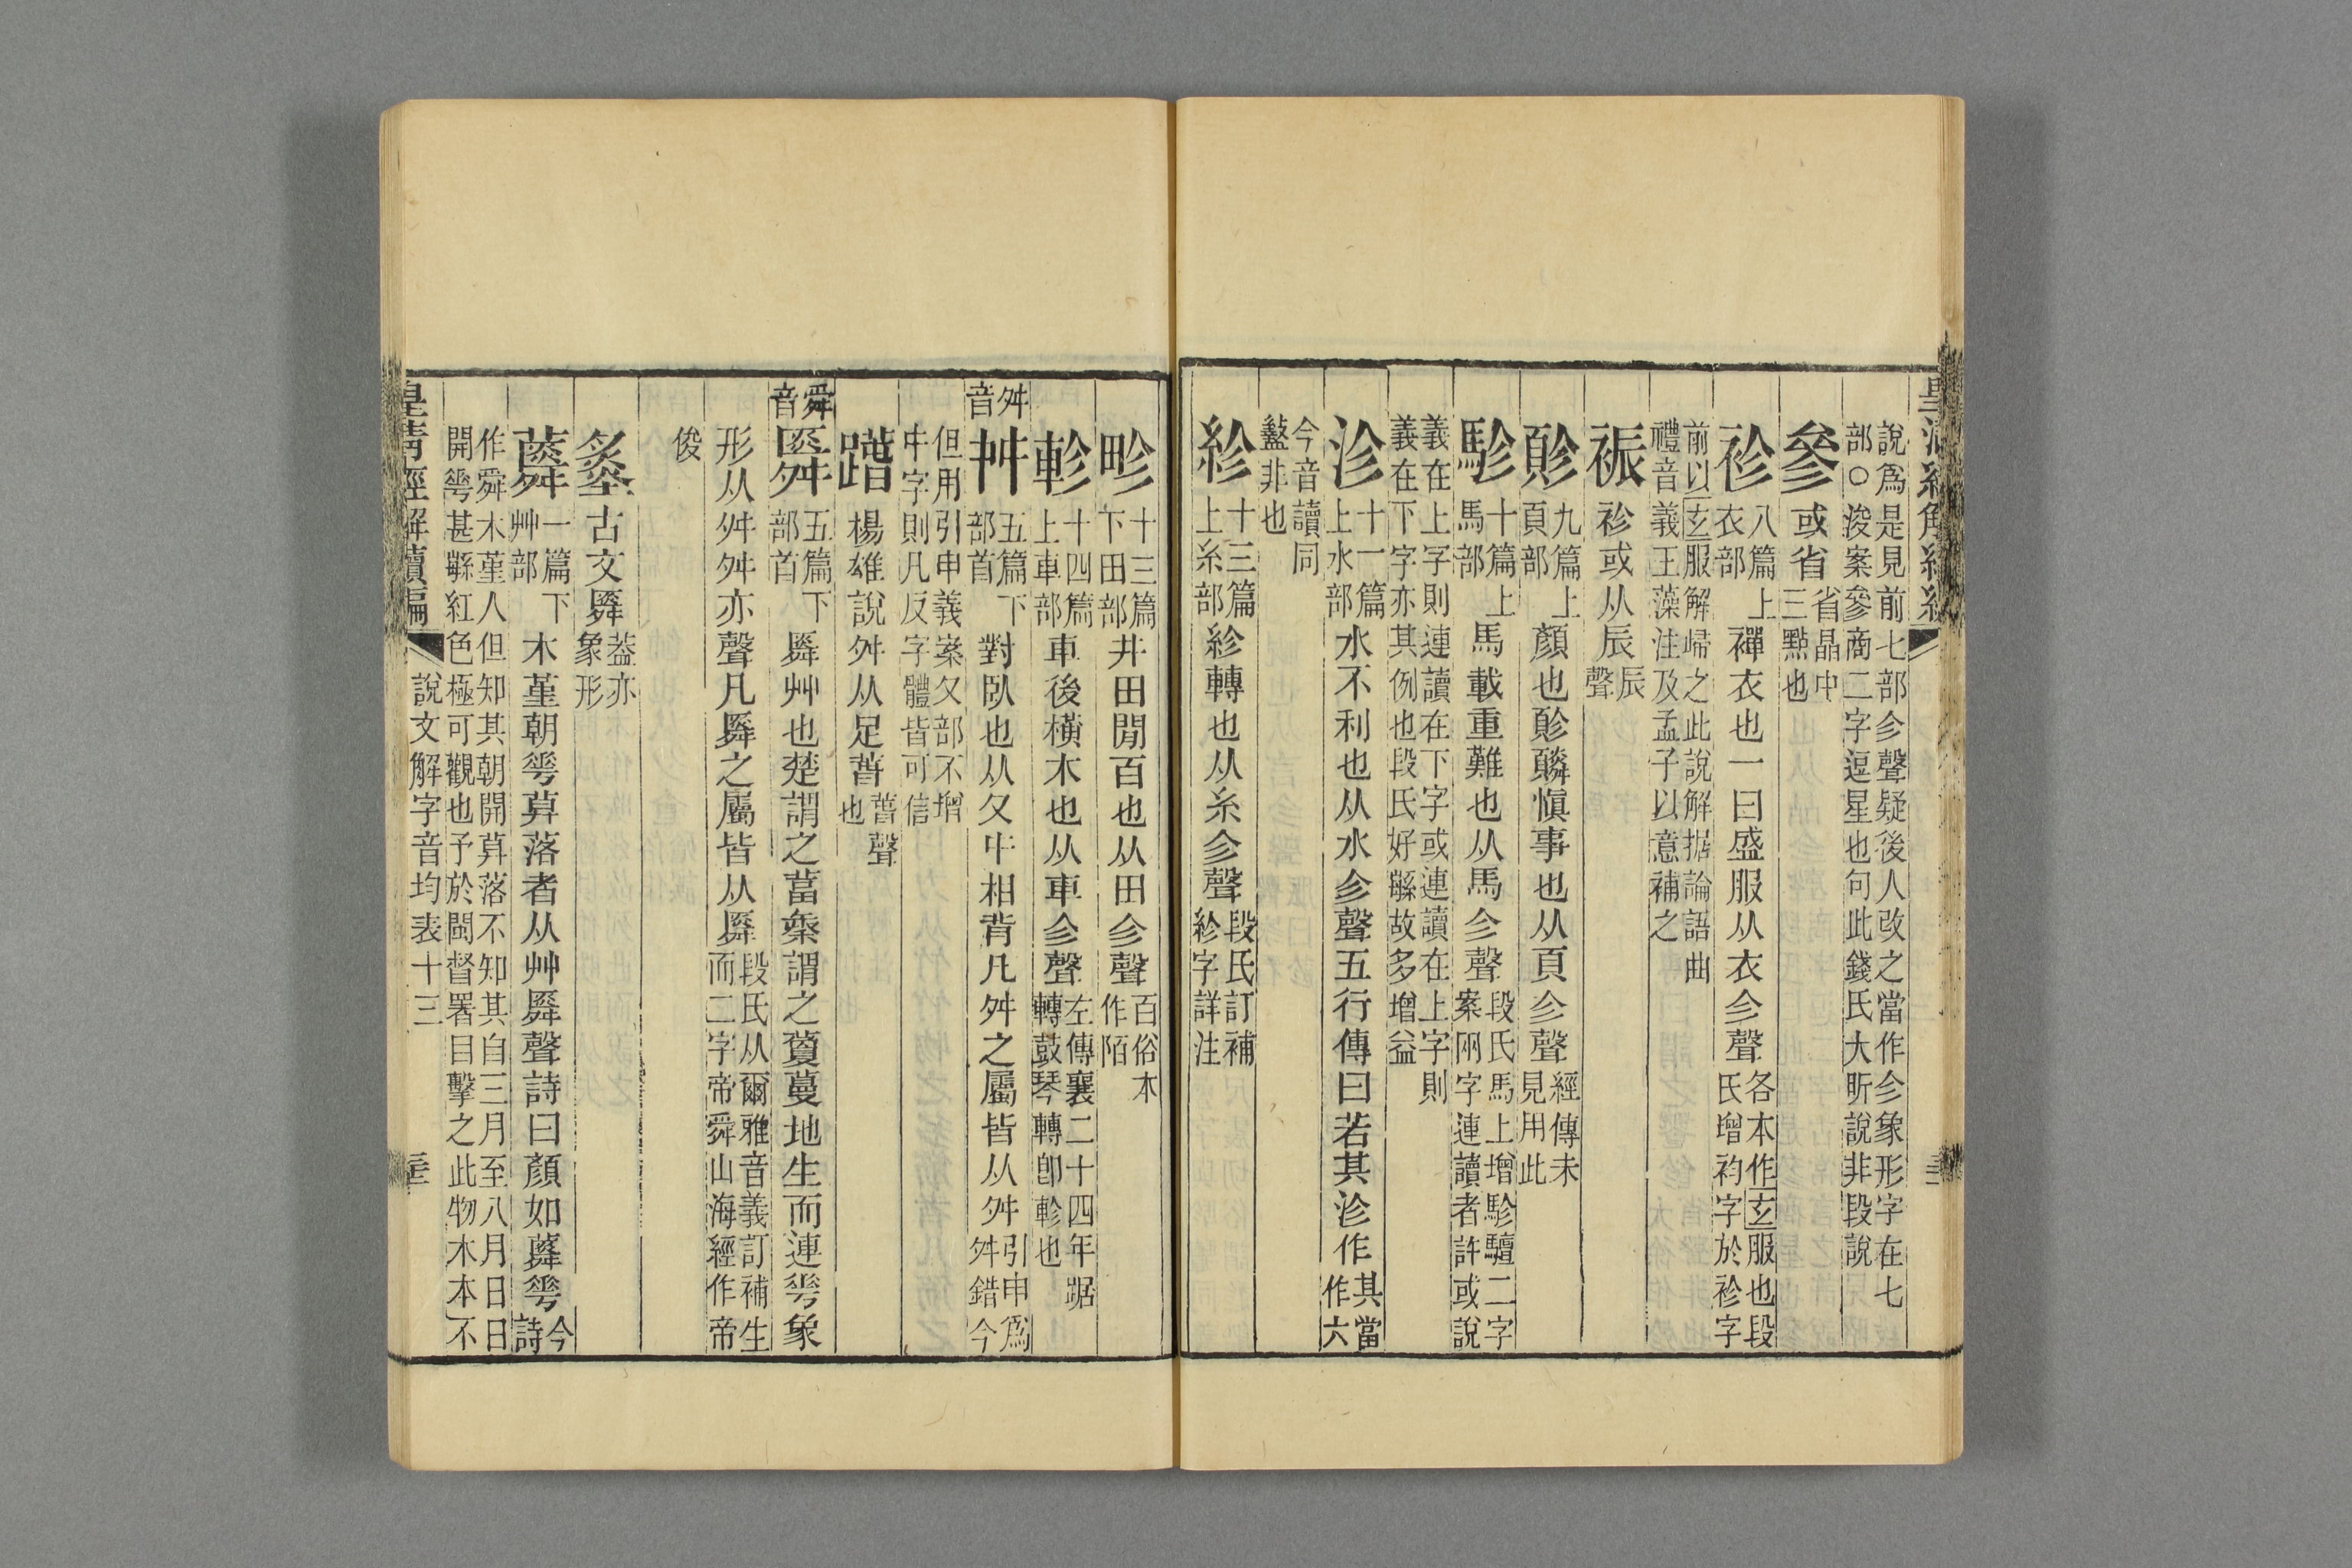 說爲是見前七部㐱聲疑後人改之當作㐱象形字在七
部○浚案參商二字逗星也句此錢氏大昕說非段說
參或省省晶中三點也
袗八篇上衣部襌衣也一曰盛服从衣㐱聲各本作玄服也段氏增袀字於袗字
前以玄服解歸之此說解据論語曲
禮音義王藻注及孟子以意補之
裖袗或从辰辰聲
䫖九篇上頁部顏也䫖䫰愼事也从頁㐱聲經傳未見用此
駗十篇上馬部馬載重難也从馬㐱聲段氏馬上增駗驙二字案网字連讀者許或說
義在上字則連讀在下字或連讀在上字則
義在下字亦其例也段氏好緐故多增益
沴十一篇上水部水不利也从水㐱聲五行傳曰若其沴作其當作六
今音讀同
盭非也
紾十三篇上糸部紾轉也从糸㐱聲段氏訂補紾字詳注
畛十三篇下田部井田閒百也从田㐱聲百俗本作陌
軫十四篇上車部車後橫木也从車㐱聲左傳襄二十四年踞轉鼓琴轉卽軫也
舛音舛五篇下部首對臥也从夊㐄相背凡舛之屬皆从舛引申爲舛錯今
但用引申義案夊部不增
㐄字則凡反字體皆可信
踳楊雄說舛从足萅萅聲也
舜音䑞五篇下部首䑞艸也楚謂之葍秦謂之藑蔓地生而連華象
形从舛舛亦聲凡䑞之屬皆从䑞段氏从爾雅音義訂補生而二字帝舜山海經作帝
俊
古文䑞葢亦象形
蕣一篇下艸部木堇朝華莫落者从艸䑞聲詩曰顏如蕣華今詩
作舜木堇人但知其朝開莫落不知其自三月至八月日日
開華甚緐紅色極可觀也予於閩督署目擊之此物木本不
皇清經解續編 說文解字音均表十三